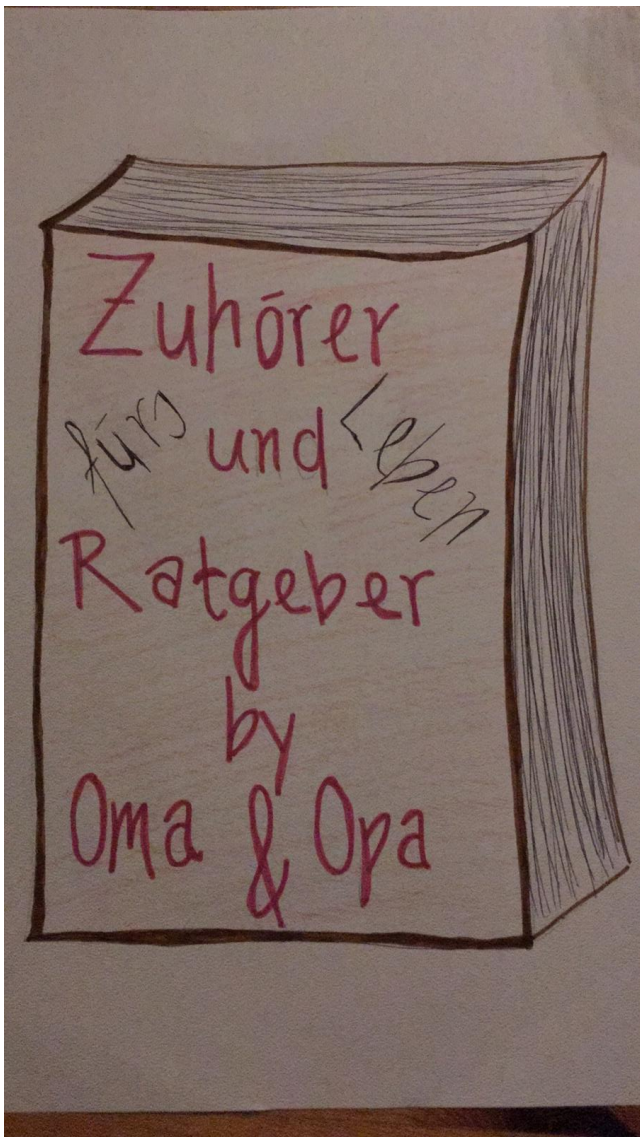 Zuhörer
fürs und Leben
Ratgeber
by
Oma & Opa